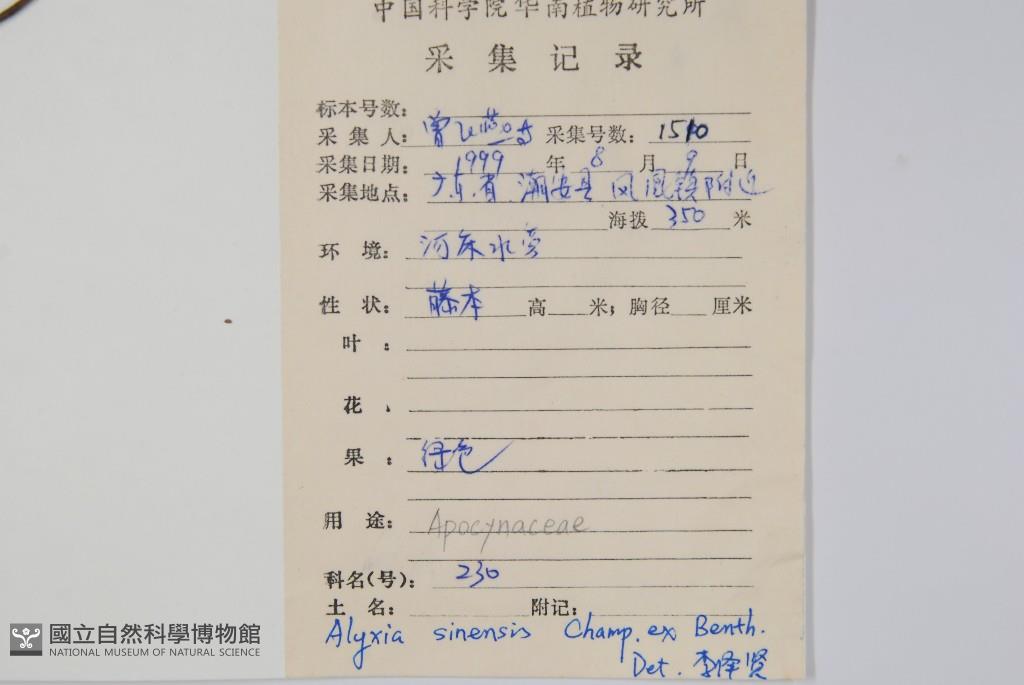 中国科学院华南植物研究所
采集记录
标本号数：
采集人：曾飞燕 采集号数：1510
采集日期：1999年8月9日
采集地点：广东省潮安县凤凰镇附近
海拨350米
环境：河床水旁
性状：藤本 高 米；胸径 厘米
叶：
花：
果：绿色
用途：Apocynaceae
科名(号)：230
土名： 附记：
Alyxia sinensis Champ. ex Benth.
Det. 李泽贤
國立自然科學博物館
NATIONAL MUSEUM OF NATURAL SCIENCE